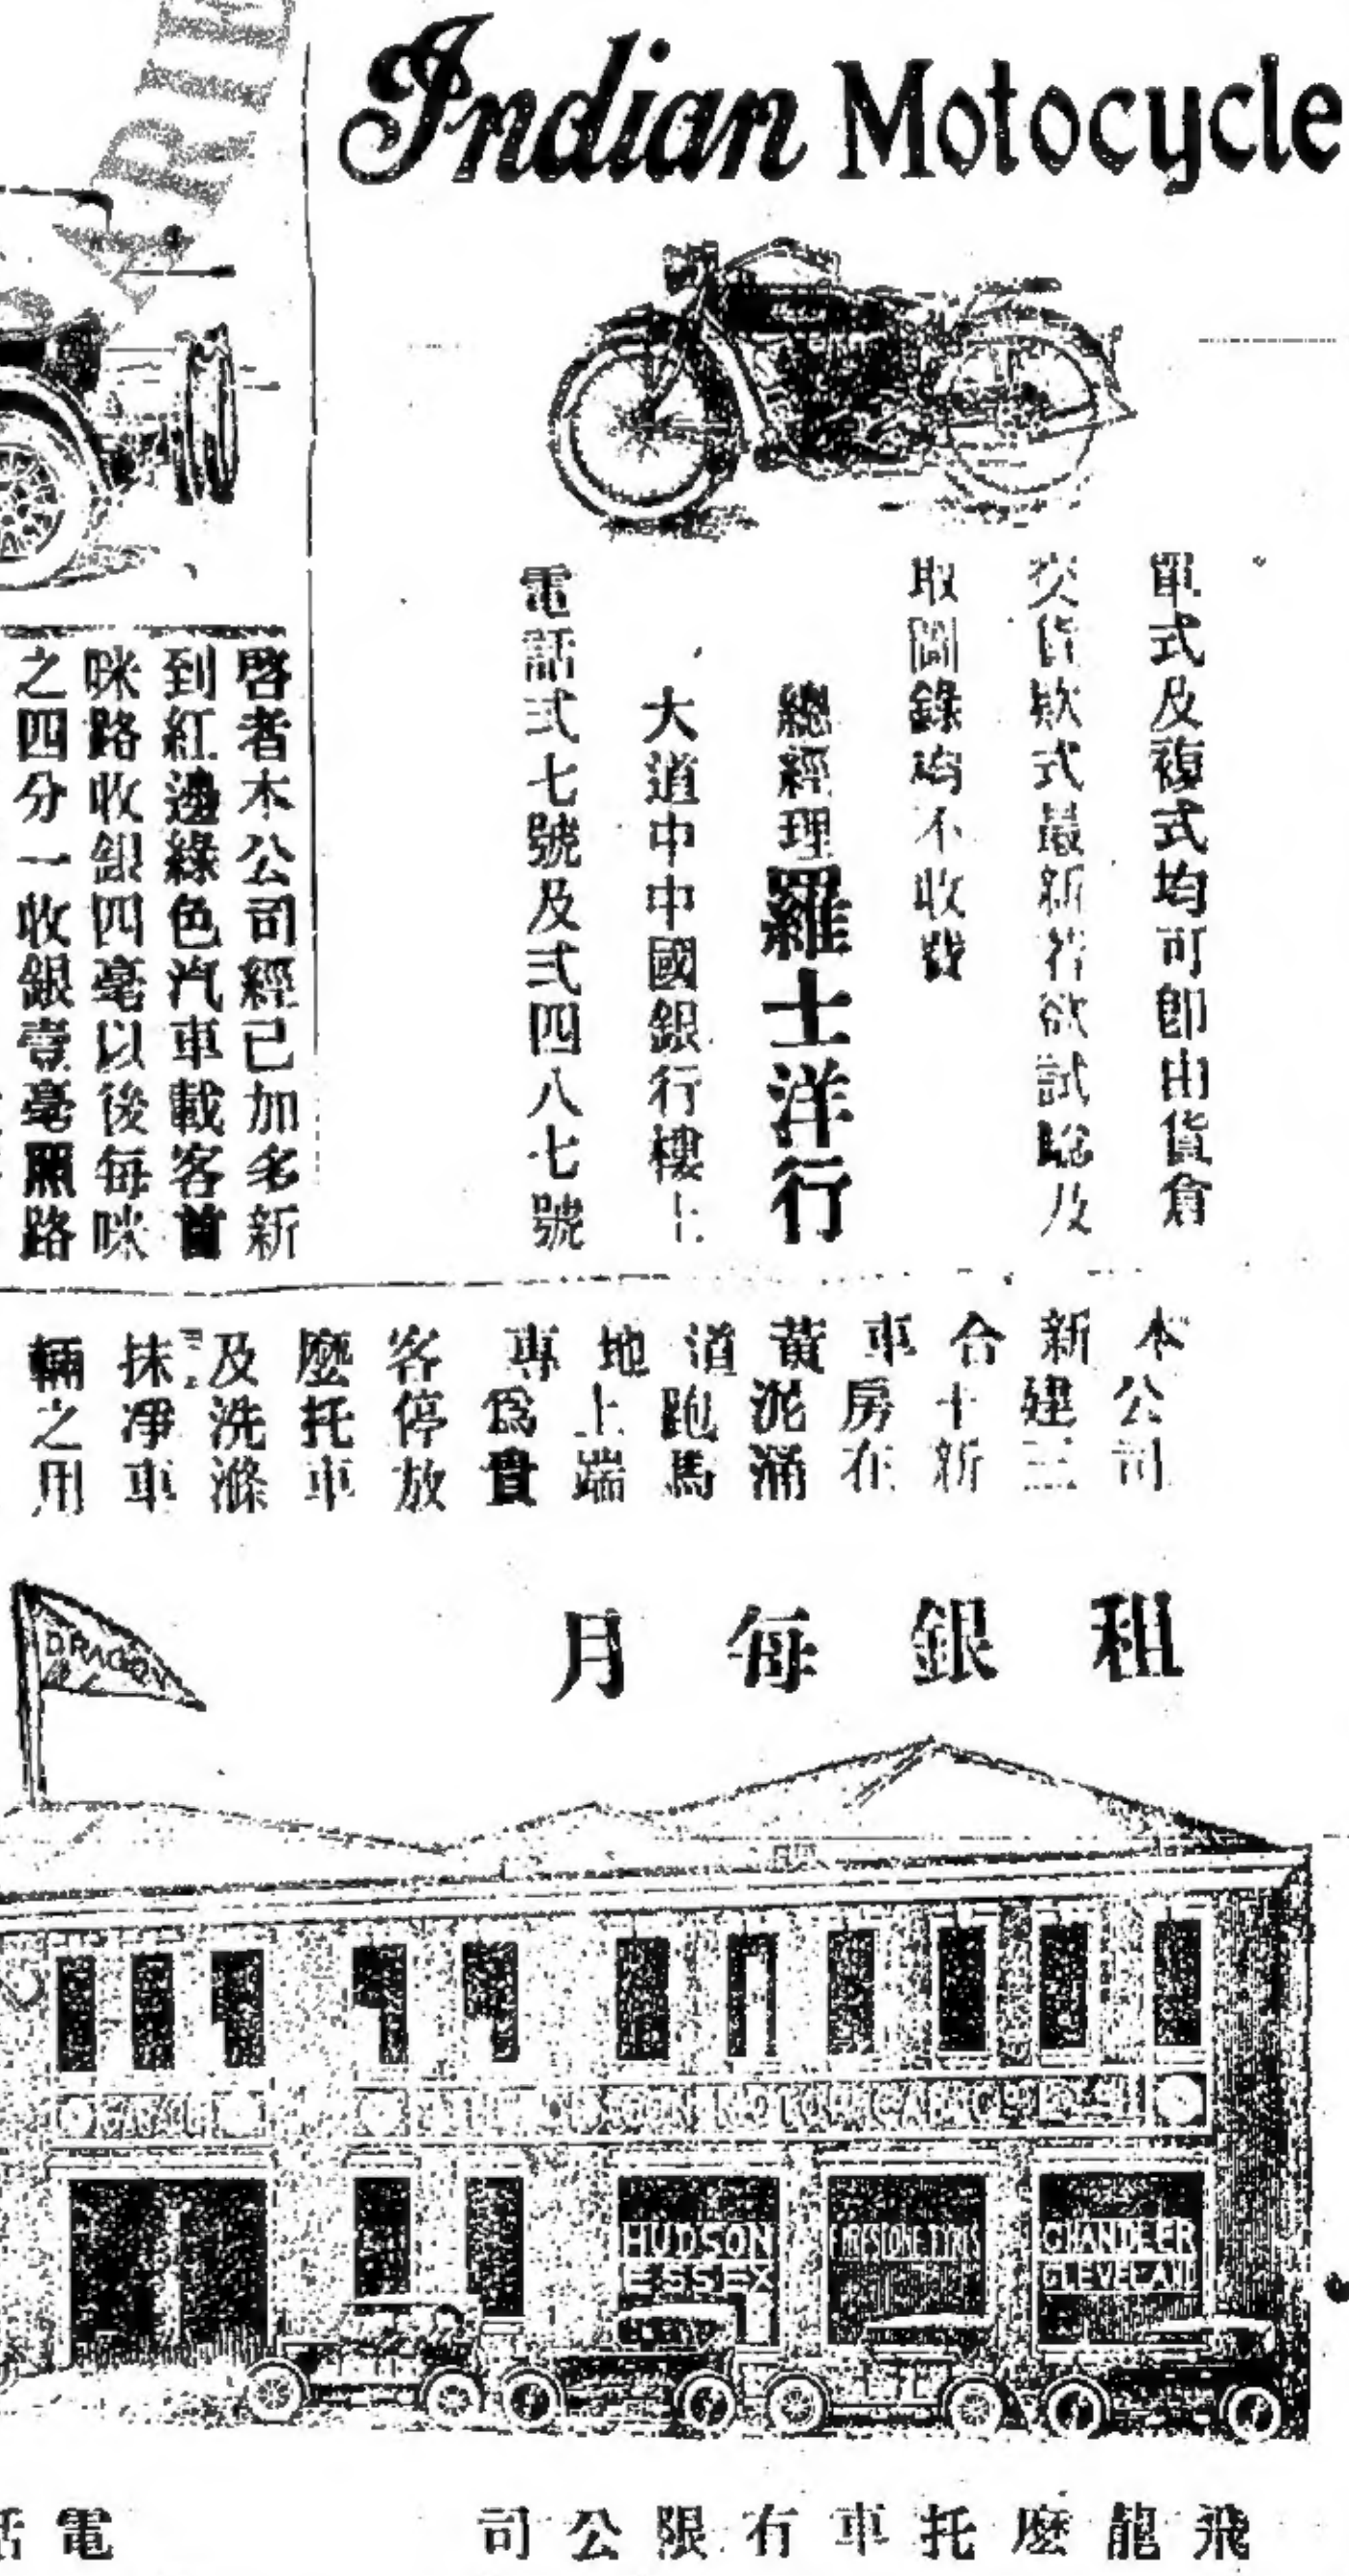 Indian Motocycle
單式及複式均可即由貨倉
交貨欵式最新若欲試騐及
取圖錄均不收費
總經理羅士洋行
大道中中國銀行樓上
電話式七號及式四八七號
啓者本公司經已加多新
到紅邊綠色汽車載客首
咪路收銀四毫以後每咪
之四分一收銀壹毫照路
本公司
新建三
合十新
車房在
黃泥涌
道跑馬
地上端
專爲貴
客停放
麼托車
及洗滌
抹凈車
輛之用
租銀每月
DRAGON
HUDSON
ESSEX
FIRESTONE TYRES
CHANDLER
CLEVELAND
飛龍麽托車有限公司
電話